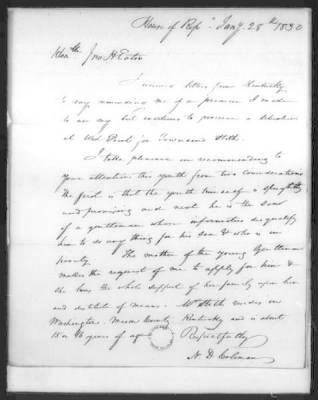 House of Reps. Jany. 28th 1830
Honble Jno H Eaton
I received letters from Kentucky
to day reminding me of a promise I made
to use my best exertions to procure a situation
at West Point for Townsend
I take pleasure in recommending to
your attention this youth from two considerations
the first is that the youth himself is sprightly
and promising and next he is the son
of a gentleman whose infirmities disqualify
him to do any thing for his son & who is in
poverty. The mother of the young Gentleman
makes the request of me to apply for him &
she has the whole support of her family upon her
and destitute of means. Mr resides in
Washington Mason County Kentucky and is about
15 or 16 years of age Respectfully
N. D. Coleman